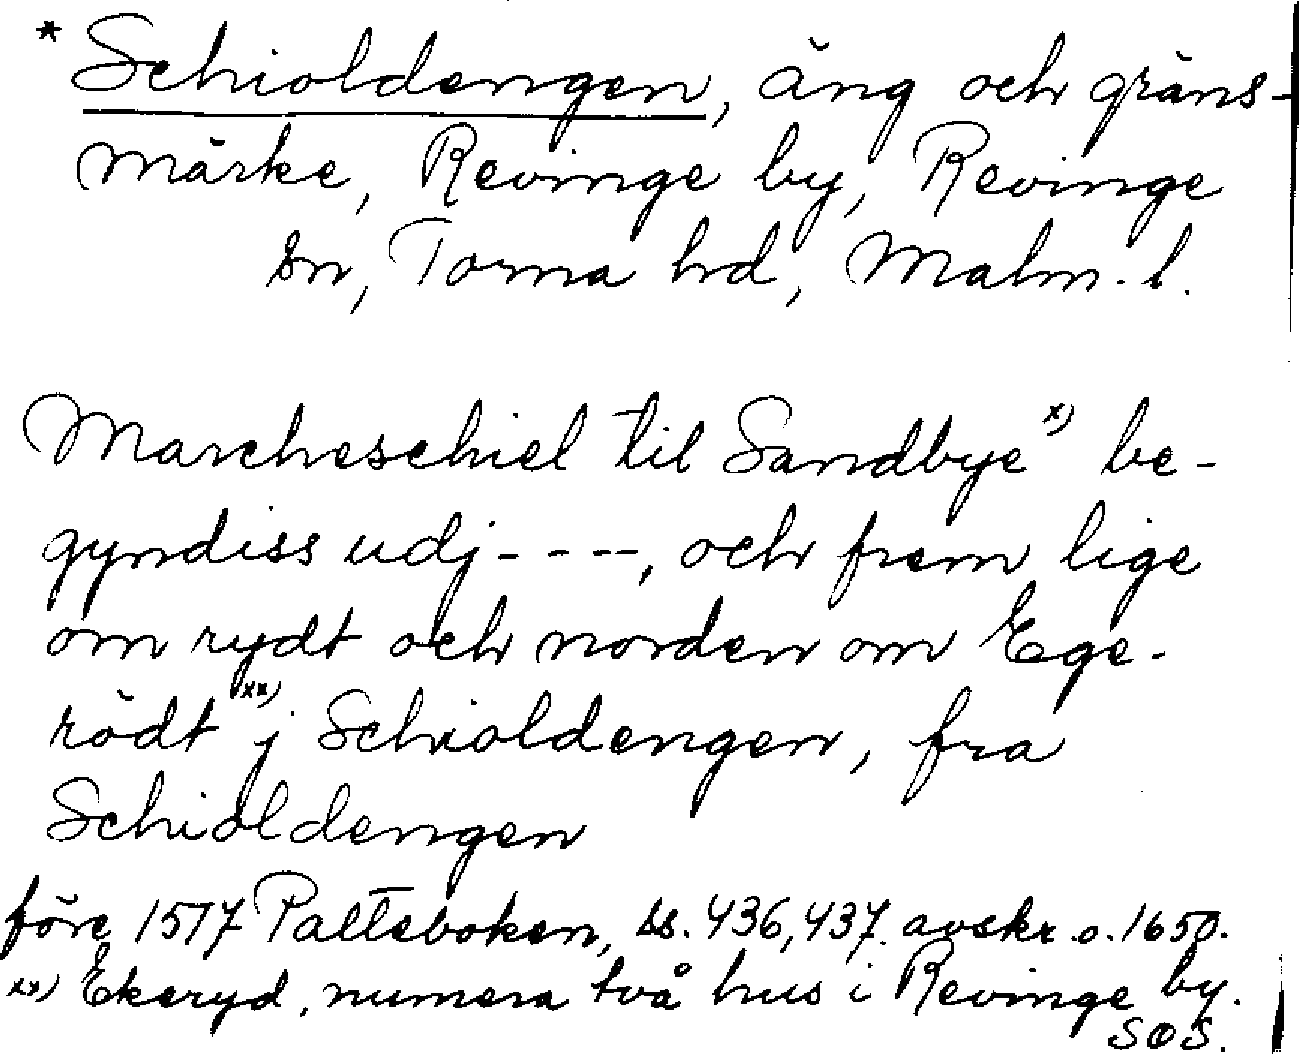 * Schioldengen, äng och gräns-
märke, Revinge by, Revinge
sn, Torna hd, Malm. l.
Marcheschiel til Sandbye x) be-
gyndiss udj - - - -, och frem lige
om rydt och norden om Ege-
rödt xx) j Schioldengen, fra
Schioldengen
före 1517 Palteboken, ss. 436, 437. avskr. o. 1650.
xx) Ekeryd, numera två hus i Revinge by.
SOS.